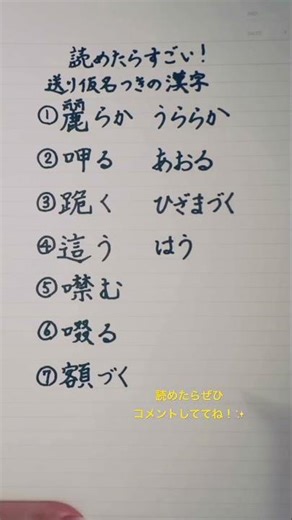 読めたらすごい!
送り仮名つきの漢字
①麗らか うららか
②呷る あおる
③跪く ひざまづく
④這う はう
⑤噤む
⑥啜る
⑦額づく
読めたらぜひ
コメントしててね!✨